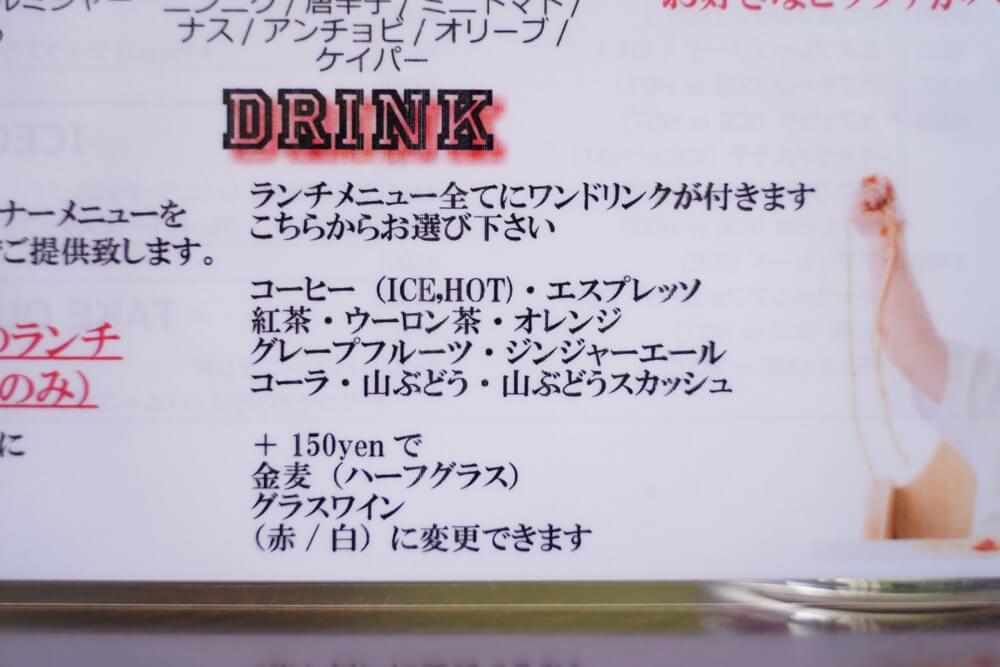 ニンニク/唐辛子/ミニトマト/
ナス/アンチョビ/オリーブ/
ケイパー
DRINK
ランチメニュー全てにワンドリンクが付きます
こちらからお選び下さい
コーヒー（ICE,HOT)・エスプレッソ
紅茶・ウーロン茶・オレンジ
グレープフルーツ・ジンジャーエール
コーラ・山ぶどう・山ぶどうスカッシュ
＋ 150yen で
金麦（ハーフグラス）
グラスワイン
（赤 / 白）に変更できます
ナーメニューを
ご提供致します。
のランチ
のみ）
に